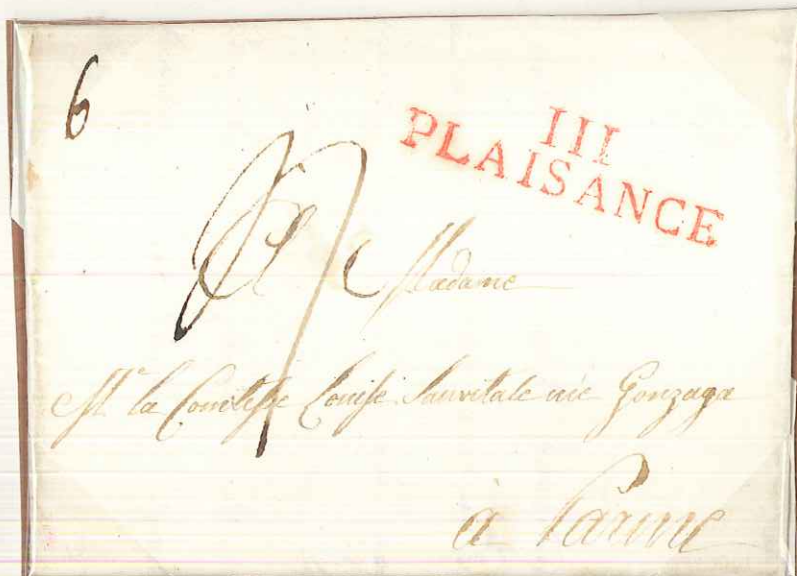 6
III
PLAISANCE
A Madame
M.e la Comtesse Louise Sanvitale née Gonzaga
à Parme